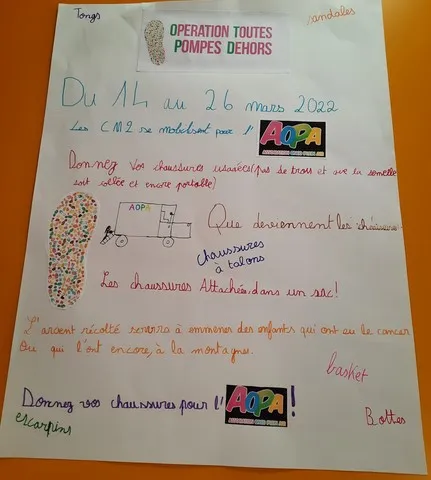 Tongs
sandales
OPERATION TOUTES
POMPES DEHORS
Du 14 au 26 mars 2022
Les CM2 se mobilisent pour l'AOPA
Donnez vos chaussures usagées (pas de trous et que la semelle
soit collée et encore portable)
AOPA
Que deviennent les
chaussures
à talons
Les chaussures Attachées dans un sac!
L'argent récolté servira à emmener des enfants qui ont eu le cancer
ou qui l'ont encore, à la montagne.
basket
Donnez vos chaussures pour l'AOPA!
escarpins
Bottes